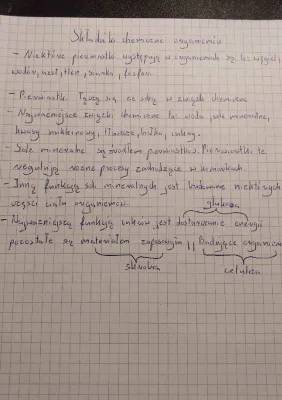 Składniki chemiczne organizmów
- Niektóre pierwiastki występują w organizmach są to: węgiel,
wodór, azot, tlen, siarka, fosfor.
- Pierwiastki łączą się ze sobą w związki chemiczne
- Najważniejsze związki chemiczne to: woda, sole mineralne,
kwasy nukleinowy, tłuszcze, białka, cukry.
- Sole mineralne są źródłem pierwiastków. Pierwiastki te
regulują różne procesy zachodzące w komórkach.
- Inną funkcją soli mineralnych jest budowanie niektórych
części ciała organizmów.
glukoza
- Najważniejszą funkcją cukrów jest dostarczanie energii
pozostałe są materiałem zapasowym, budujące organizm
skrobia
celuloza